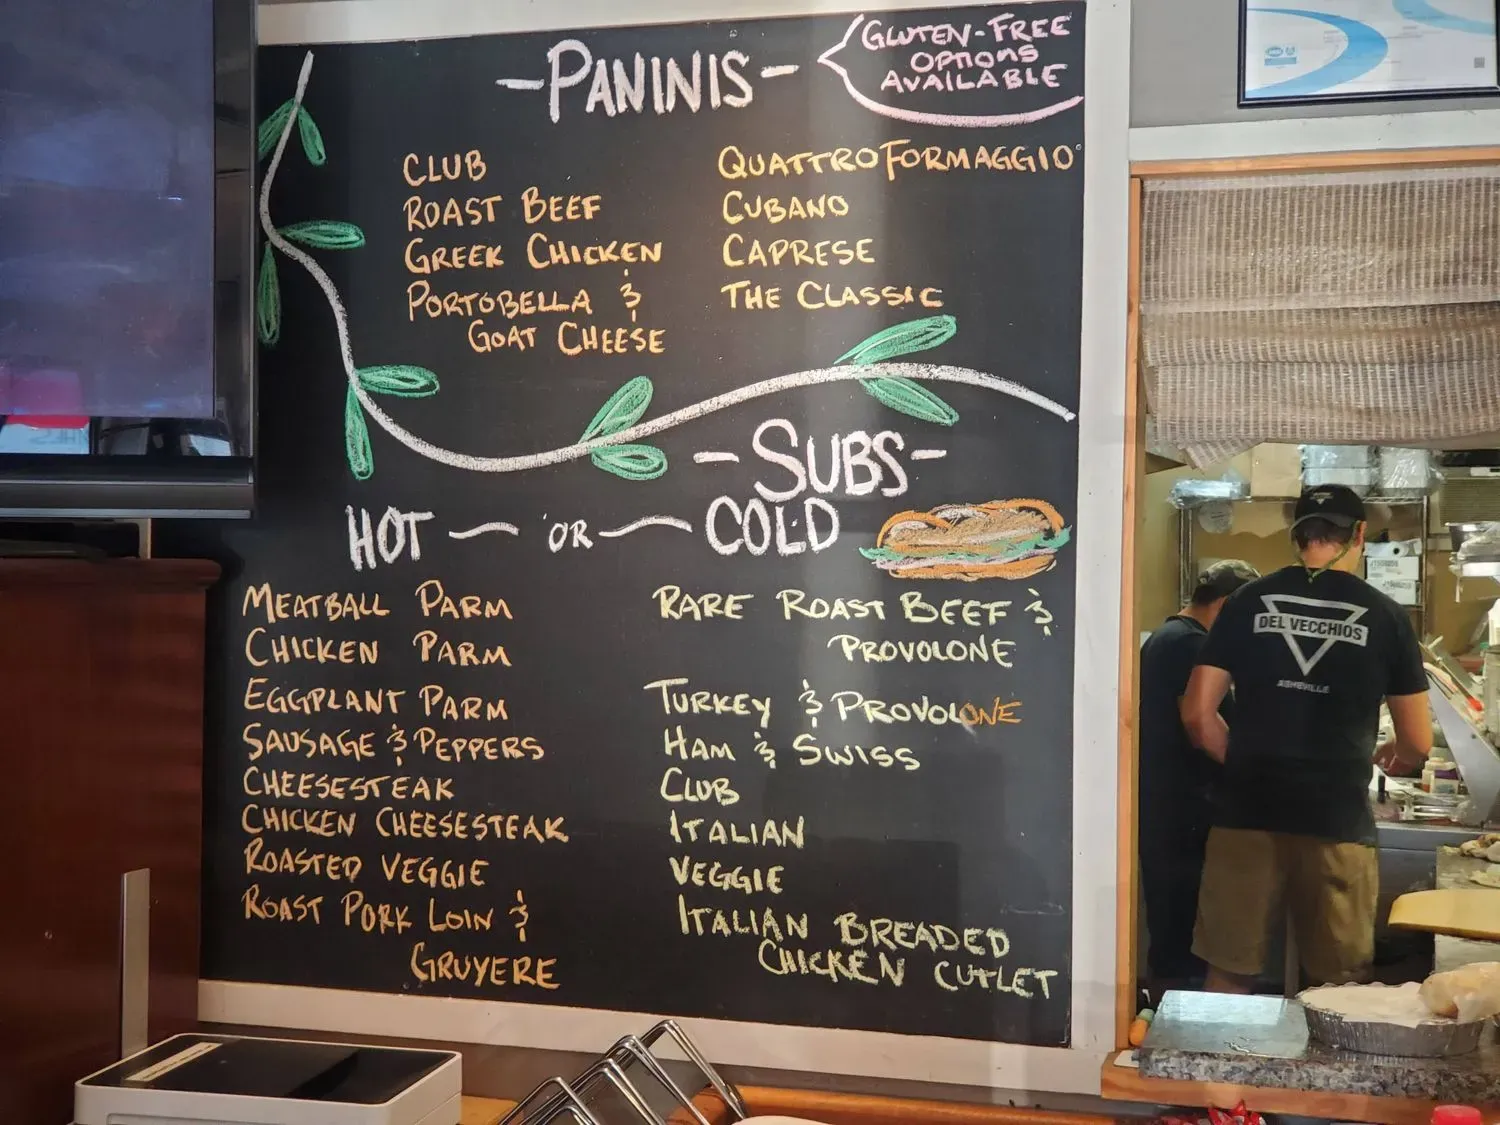 -PANINIS-
GLUTEN-FREE
OPTIONS
AVAILABLE
CLUB
ROAST BEEF
GREEK CHICKEN
PORTOBELLA &
GOAT CHEESE
QUATTRO FORMAGGIO
CUBANO
CAPRESE
THE CLASSIC
-SUBS-
HOT - OR - COLD
MEATBALL PARM
CHICKEN PARM
EGGPLANT PARM
SAUSAGE & PEPPERS
CHEESESTEAK
CHICKEN CHEESESTEAK
ROASTED VEGGIE
ROAST PORK LOIN &
GRUYERE
RARE ROAST BEEF &
PROVOLONE
TURKEY & PROVOLONE
HAM & SWISS
CLUB
ITALIAN
VEGGIE
ITALIAN BREADED
CHICKEN CUTLET
DEL VECCHIOS
ASHEVILLE